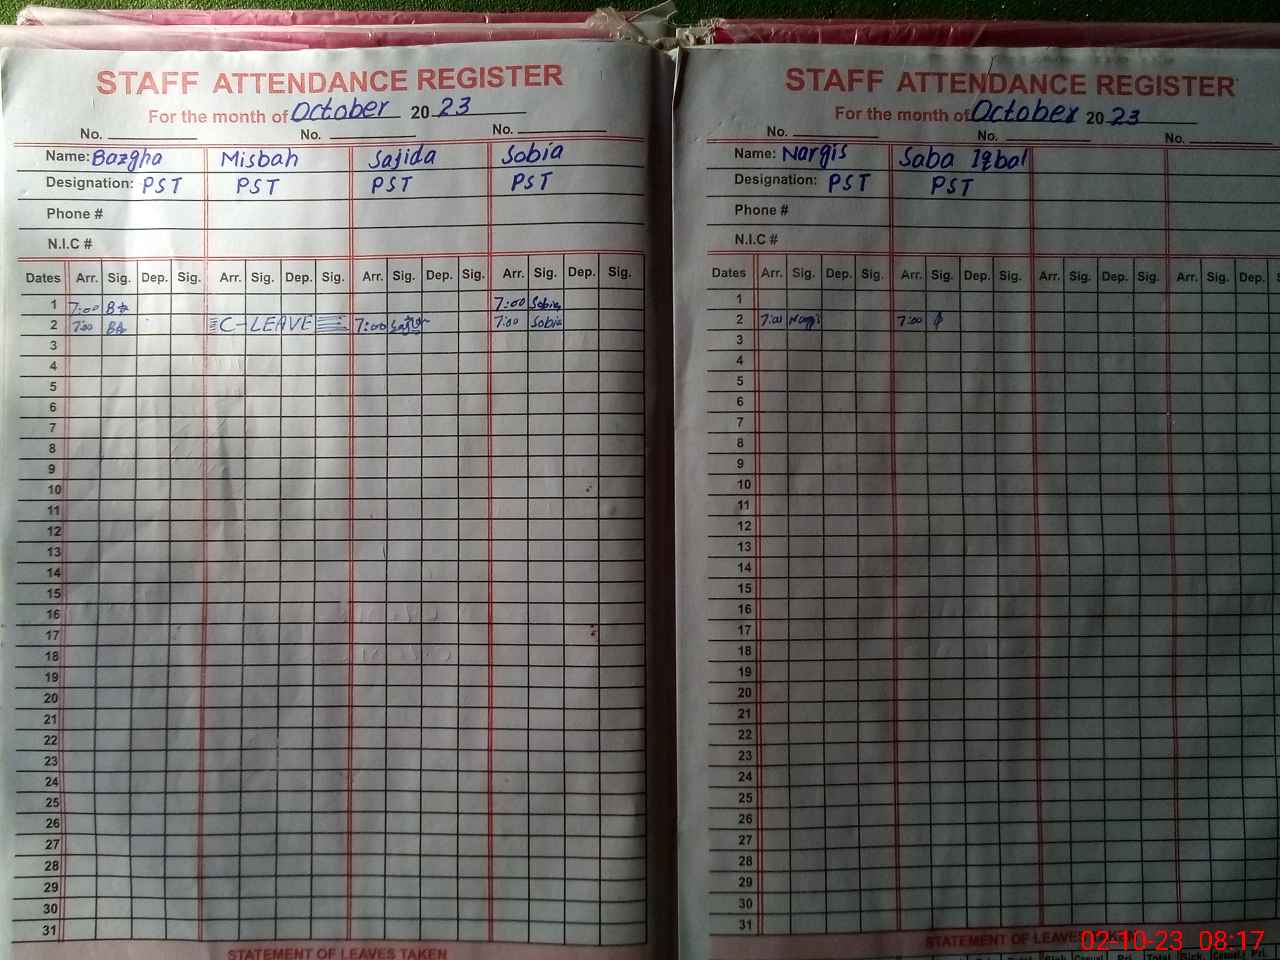 STAFF ATTENDANCE REGISTER
For the month of October 2023
No. No. No.
Name: Bazgha Misbah Sajida Sobia
Designation: PST PST PST PST
Phone #
N.I.C #
Dates Arr. Sig. Dep. Sig. Arr. Sig. Dep. Sig. Arr. Sig. Dep. Sig. Arr. Sig. Dep. Sig.
1 7:00 7:00 Sobia
2 7:00 C-LEAVE 7:00 7:00 Sobia
3
4
5
6
7
8
9
10
11
12
13
14
15
16
17
18
19
20
21
22
23
24
25
26
27
28
29
30
31
STATEMENT OF LEAVES TAKEN
STAFF ATTENDANCE REGISTER
For the month of October 2023
No. No. No.
Name: Nargis Saba Iqbal
Designation: PST PST
Phone #
N.I.C #
Dates Arr. Sig. Dep. Sig. Arr. Sig. Dep. Sig. Arr. Sig. Dep. Sig. Arr. Sig. Dep.
1
2 7:00 7:00
3
4
5
6
7
8
9
10
11
12
13
14
15
16
17
18
19
20
21
22
23
24
25
26
27
28
29
30
31
STATEMENT OF LEAVES
02-10-23 08:17